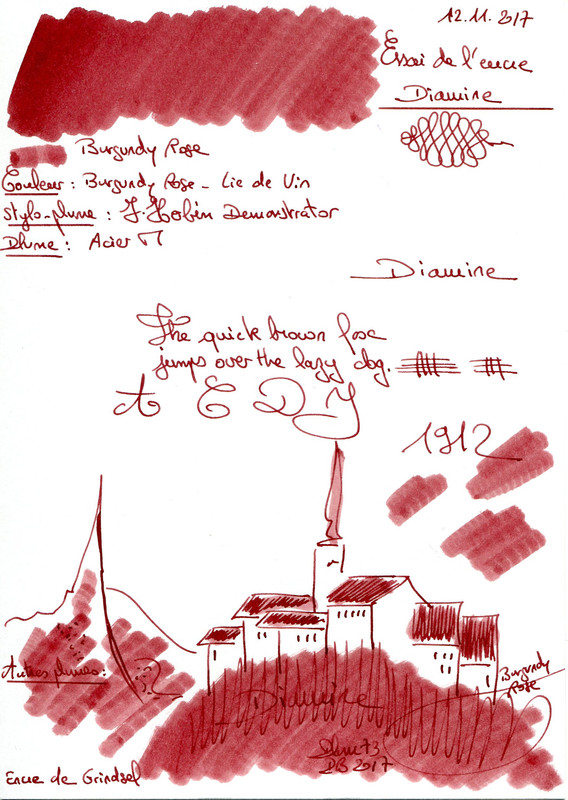 12.11.2017
Essai de l'encre
Diamine
Burgundy Rose
Couleur : Burgundy Rose - Lie de Vin
Stylo-plume : J. Herbin Demonstrator
Plume : Acier M
Diamine
The quick brown fox
jumps over the lazy dog.
A E D J
1912
Autres plumes :
Diamine
Burgundy
Rose
DB 2017
Encre de Grindsel